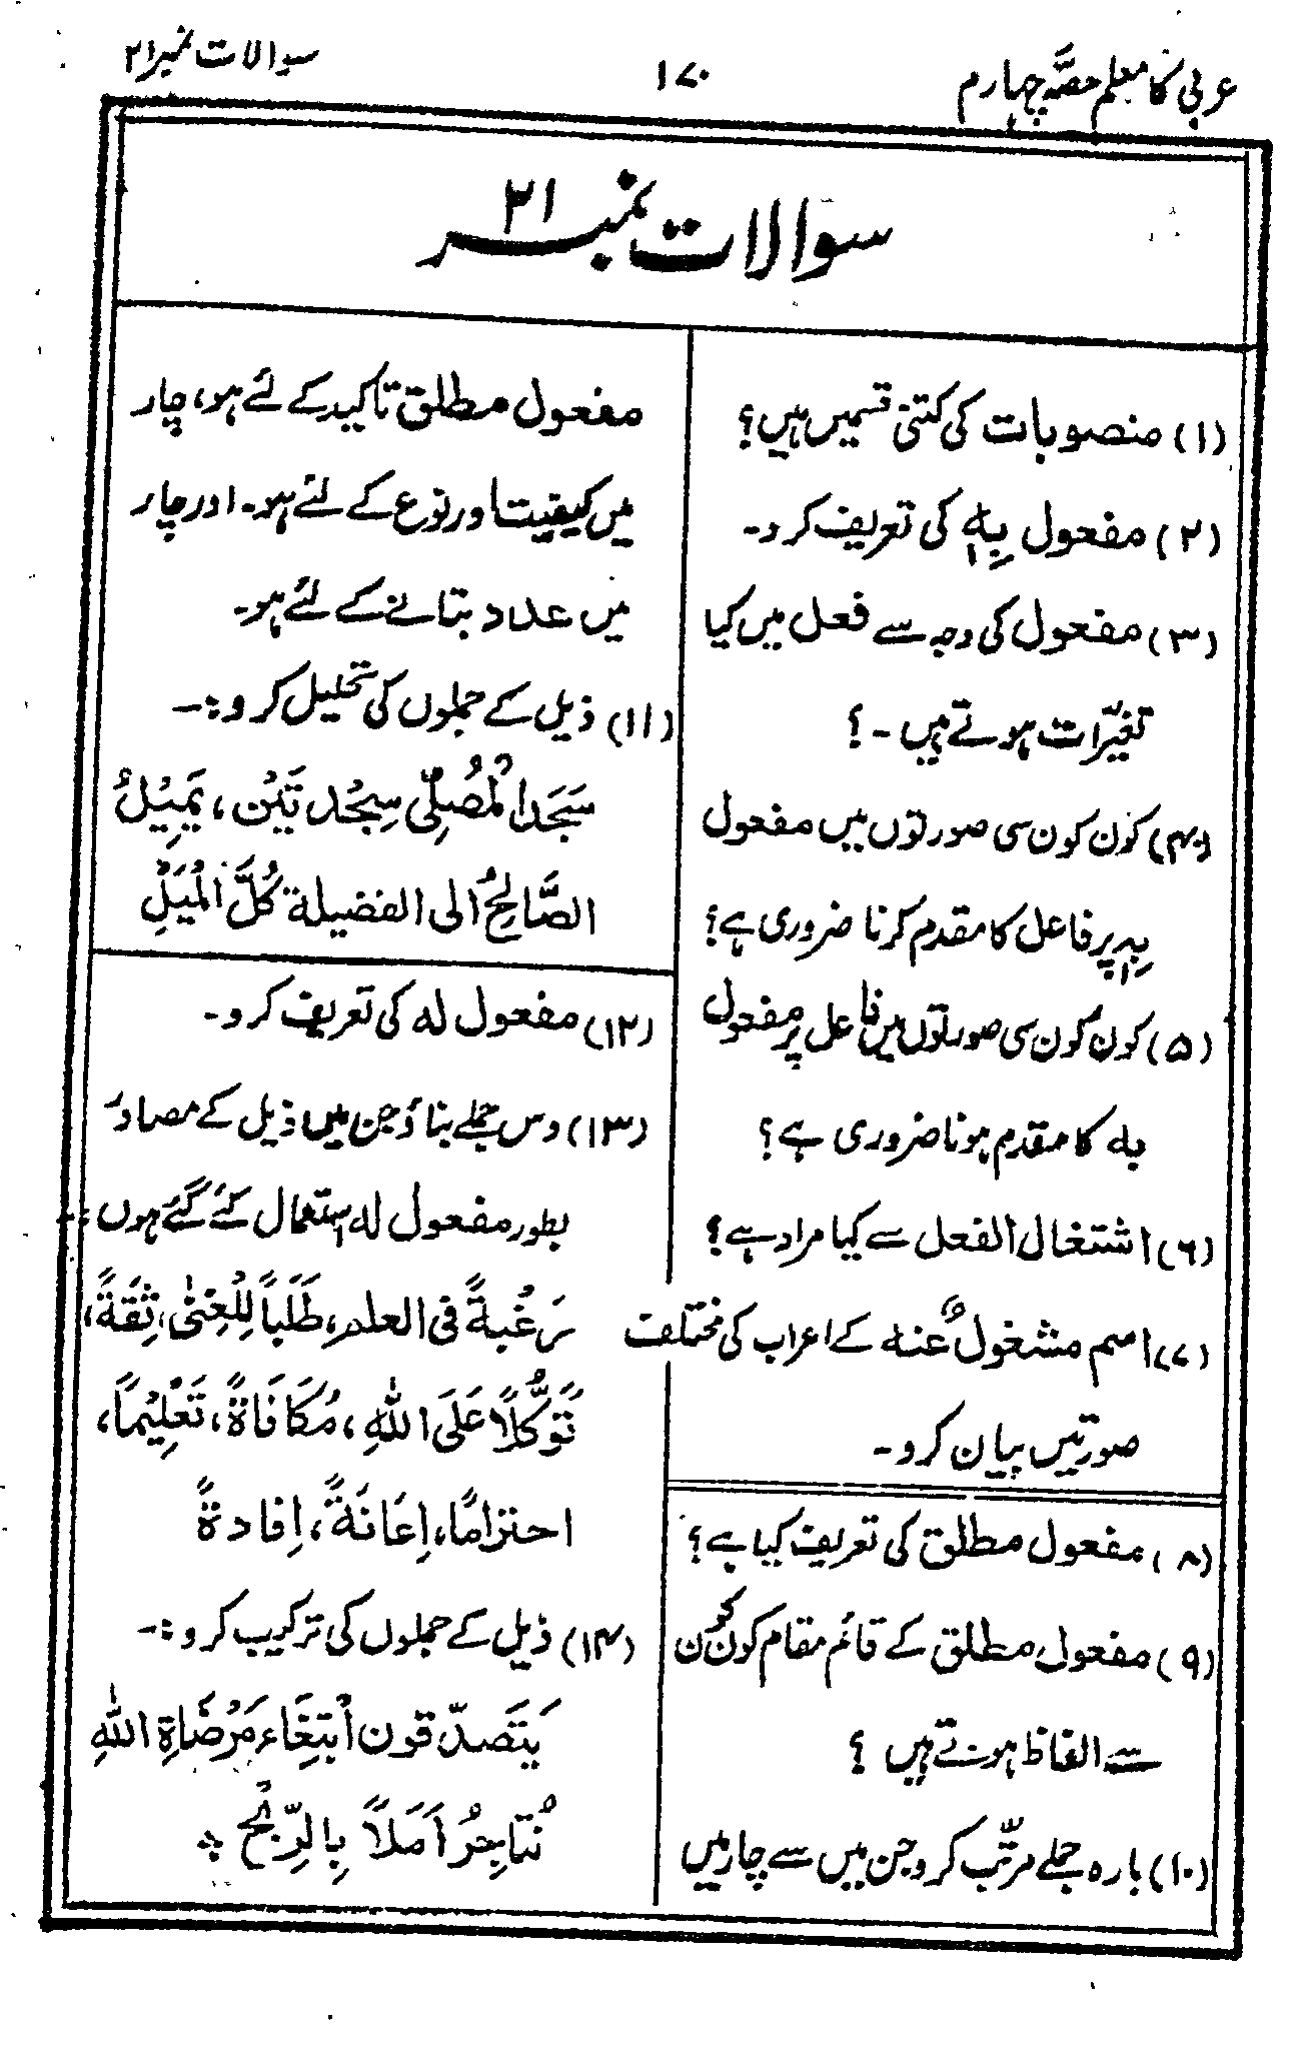 عربی کا معلم حصّہ چہارم
۱۷۰
سوالات نمبر ۲۱
سوالات نمبر ۲۱
(۱) منصوبات کی کتنی قسمیں ہیں؟
(۲) مفعول بِہٖ کی تعریف کرو۔
(۳) مفعول کی وجہ سے فعل میں کیا
تغیّرات ہوتے ہیں۔؟
(۴) کون کون سی صورتوں میں مفعول
بِہٖ پر فاعل کا مقدم کرنا ضروری ہے؟
(۵) کون کون سی صورتوں میں فاعل پر مفعول
بہ کا مقدم ہونا ضروری ہے؟
(۶) اشتغال الفعل سے کیا مراد ہے؟
(۷) اسم مشغولٌ عنہ کے اعراب کی مختلف
صورتیں بیان کرو۔
(۸) مفعول مطلق کی تعریف کیا ہے؟
(۹) مفعول مطلق کے قائم مقام کون کون
سے الفاظ ہوتے ہیں ؟
(۱۰) بارہ جملے مرتّب کرو جن میں سے چار میں
مفعول مطلق تاکید کے لئے ہو، چار
میں کیفیت اور نوع کے لئے ہو۔ اور چار
میں عدد بتانے کے لئے ہو۔
(۱۱) ذیل کے جملوں کی تحلیل کرو:۔
سَجَدَ الْمُصَلِّی سِجْدتَیْن، یَمِیْلُ
الصَّالِحُ الی الفضیلة کُلَّ الْمَیْلِ
(۱۲) مفعول لہ کی تعریف کرو۔
(۱۳) دس جملے بناؤ جن میں ذیل کے مصادر
بطور مفعول لہ استعمال کئے گئے ہوں:۔
رَغْبةً فی العلمِ، طَلَبًا لِلْغِنٰی، ثِقَةً،
تَوَکُّلًا عَلَی اللّٰهِ، مُکَافَاةً، تَعْلِیْمًا،
احترامًا، اِعَانَةً، اِفادةً
(۱۴) ذیل کے جملوں کی ترکیب کرو:۔
یَتَصدّقون ابْتِغَاء مَرْضَاةِ اللّٰهِ
نُتَاجِرُ اَمَلًا بِالرِّبْحِ